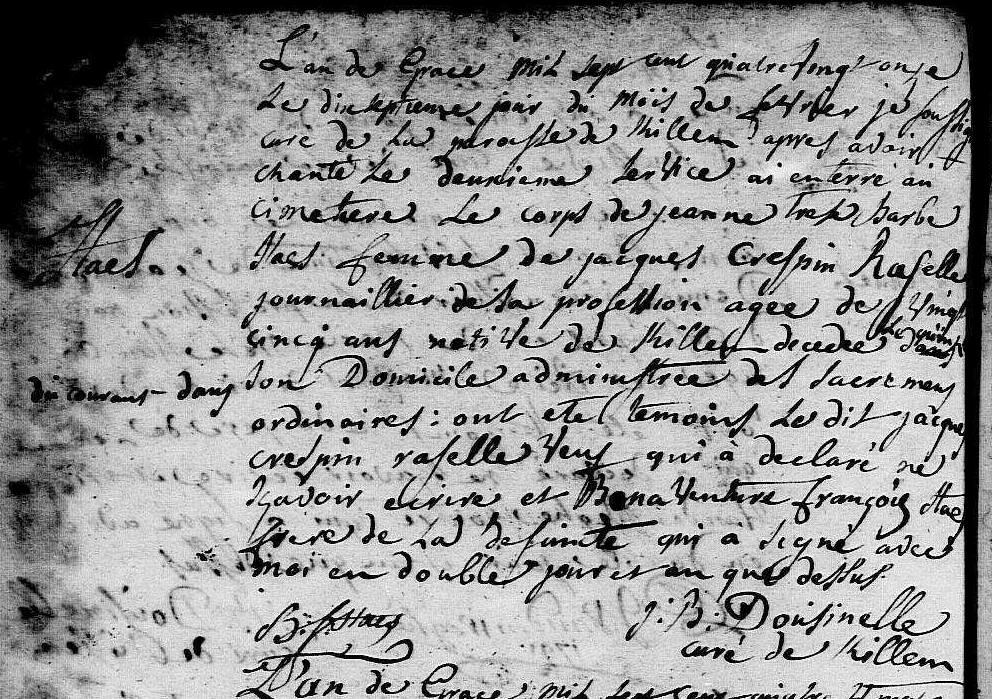 L'an de Grace mil sept cent quatrevingt onze
Le dixseptieme jour du mois de fevrier je soussig
curé de La paroisse de Killem apres avoir
chanté Le deuxieme service ai enterré au
cimetiere Le corps de jeanne Barbe
Staes.
Staes femme de jacques Crespin Raselle
journaillier de sa profession agee de vingt
cinq ans native de Killem decedee le quinze
du courant dans
son Domicile administrée des sacremens
ordinaires: ont ete temoins Le dit jacque
crespin raselle veuf qui a declaré ne
scavoir ecrire et Bonaventure françois Stae
frere de La defunte qui a signé avec
moi en double jour et an que dessus.
B. f. Staes
j. B. Dousinelle
curé de Killem
L'an de Grace mil sept cent